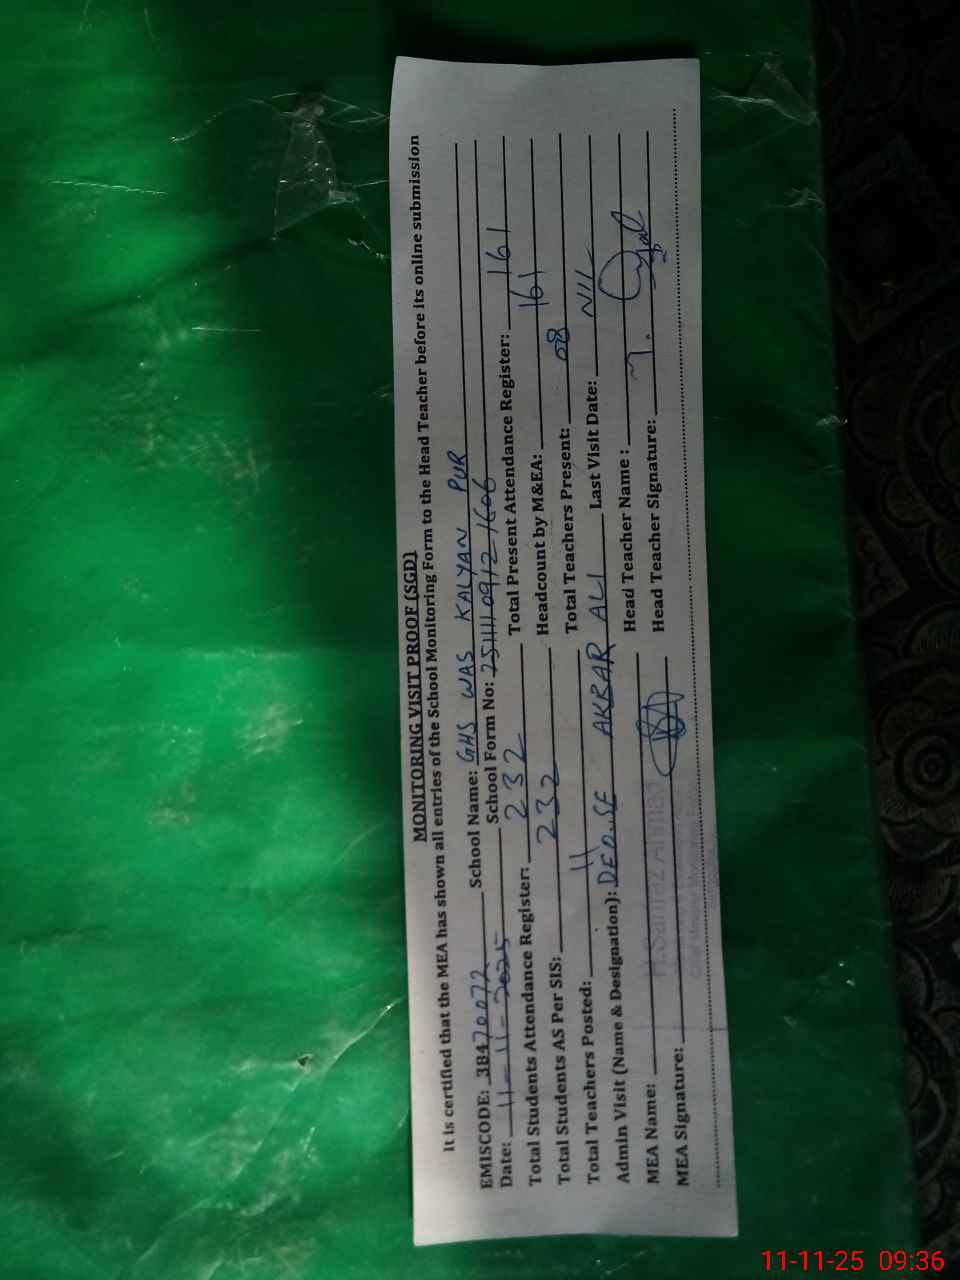 MONITORING VISIT PROOF (SGD)
It is certified that the MEA has shown all entries of the School Monitoring Form to the Head Teacher before its online submission
EMISCODE: 38470072 School Name: GHS WAS KALYAN PUR
Date: 11-11-2025 School Form No: 251111 0912 1606
Total Students Attendance Register: 232 Total Present Attendance Register: 161
Total Students AS Per SIS: 232 Headcount by M&EA: 161
Total Teachers Posted: 11 Total Teachers Present: 08
Admin Visit (Name & Designation): AKBAR ALI Last Visit Date: NIL
MEA Name: Head Teacher Name :
MEA Signature: Head Teacher Signature:
11-11-25 09:36